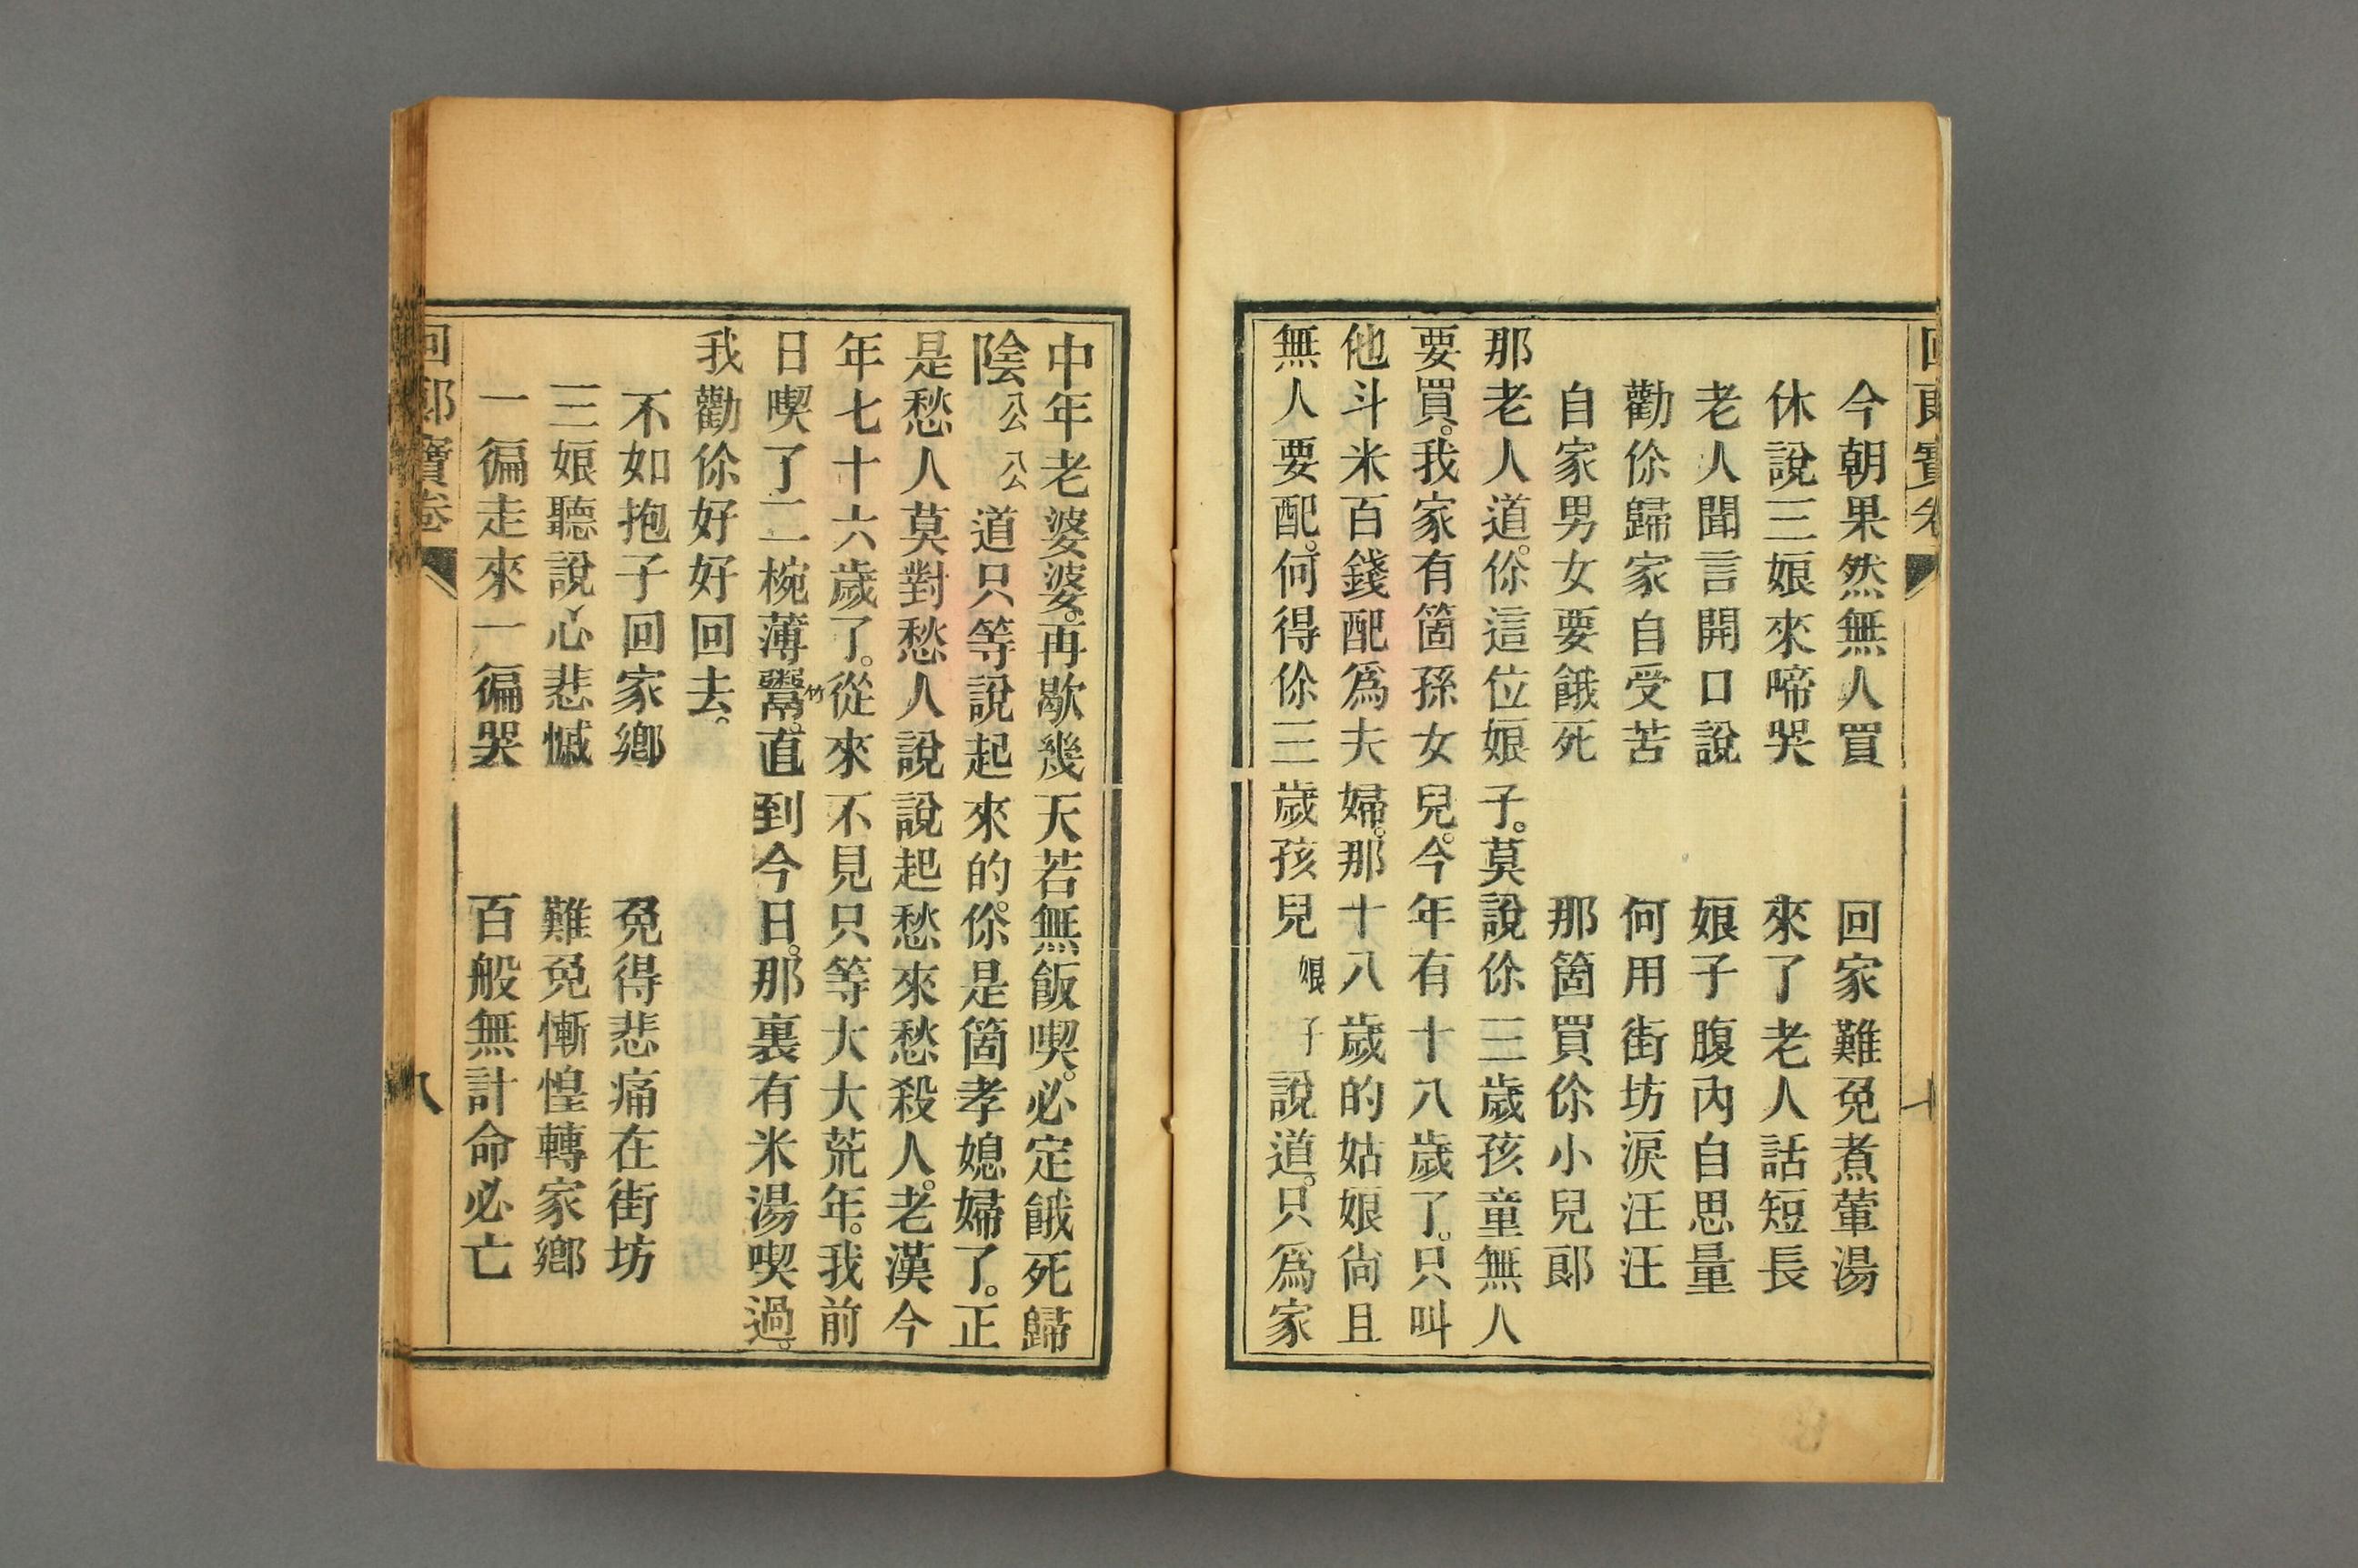 今朝果然無人買　回家難免煮葷湯
休說三娘來啼哭　來了老人話短長
老人聞言開口說　娘子腹內自思量
勸你歸家自受苦　何用街坊淚汪汪
自家男女要餓死　那箇買你小兒郎
那老人道。你這位娘子。莫說你三歲孩童無人
要買。我家有箇孫女兒。今年有十八歲了。只叫
他斗米百錢配爲夫婦。那十八歲的姑娘尙且
無人要配。何得你三歲孩兒娘子說道。只爲家
中年老婆婆。再歇幾天若無飯喫。必定餓死歸
陰公公道只等說起來的。你是箇孝媳婦了。正
是愁人莫對愁人說說起愁來愁殺人。老漢今
年七十六歲了。從來不見只等大大荒年。我前
日喫了二椀薄鬻竹。直到今日。那裏有米湯喫過。
我勸你好好回去。
不如抱子回家鄉　免得悲痛在街坊
三娘聽說心悲慽　難免慚惶轉家鄉
一徧走來一徧哭　百般無計命必亡
回郎寶卷
八